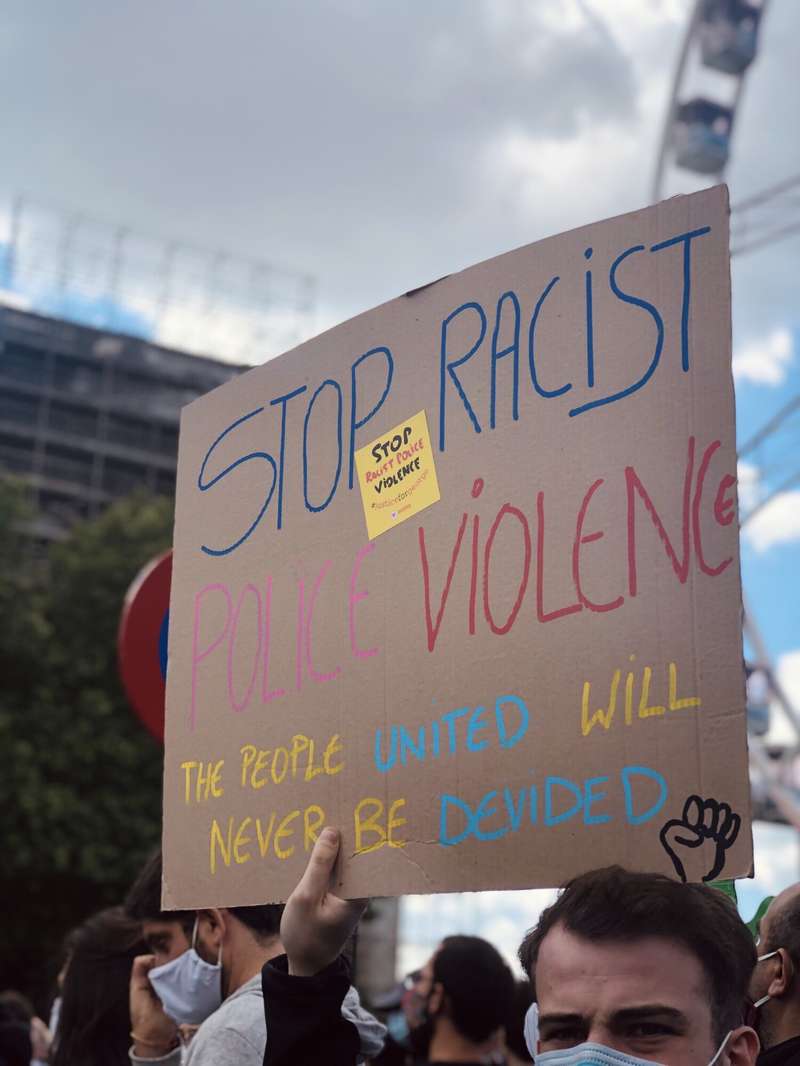 STOP RACIST
STOP
RACIST POLICE
VIOLENCE
#justiceforgeorge
POLICE VIOLENCE
THE PEOPLE UNITED WILL
NEVER BE DEVIDED